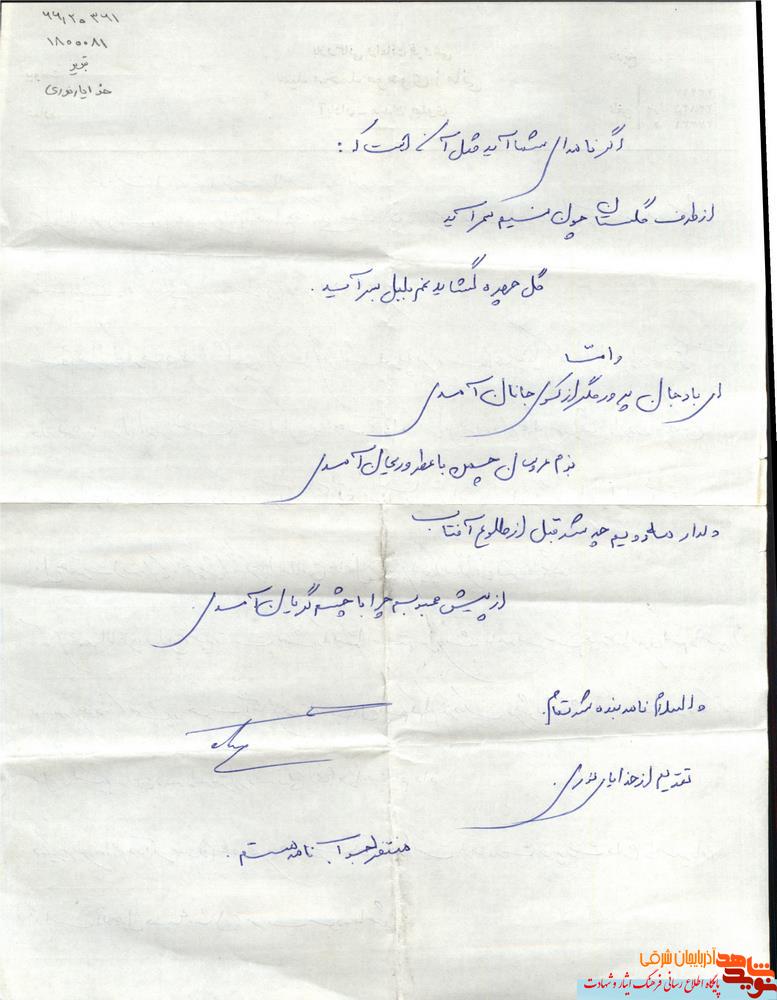 ۶۶،۲۵ ۳۶۱
۱۸۰۰۰۸۱
تبریز
خدایار نوری
اگر نامه‌ای شما آید مثل آن است که :
از طرف گلستان چون نسیم سحر آید
گل چهره گشاید غم بلبل بسر آید .
و اما
ای باد جان پرور مگر از کوی جانان آمدی
بزم عروسان چمن با عطر و ریحان آمدی
دلدار مهرویم چه شد قبل از طلوع آفتاب
از پیش محبوبم چرا با چشم گریان آمدی
والسلام نامه بنده شد تمام.
تقدیم از خدایار نوری.
منتظر جواب نامه هستم .
نوید شاهد آذربایجان شرقی
پایگاه اطلاع رسانی فرهنگ ایثار و شهادت